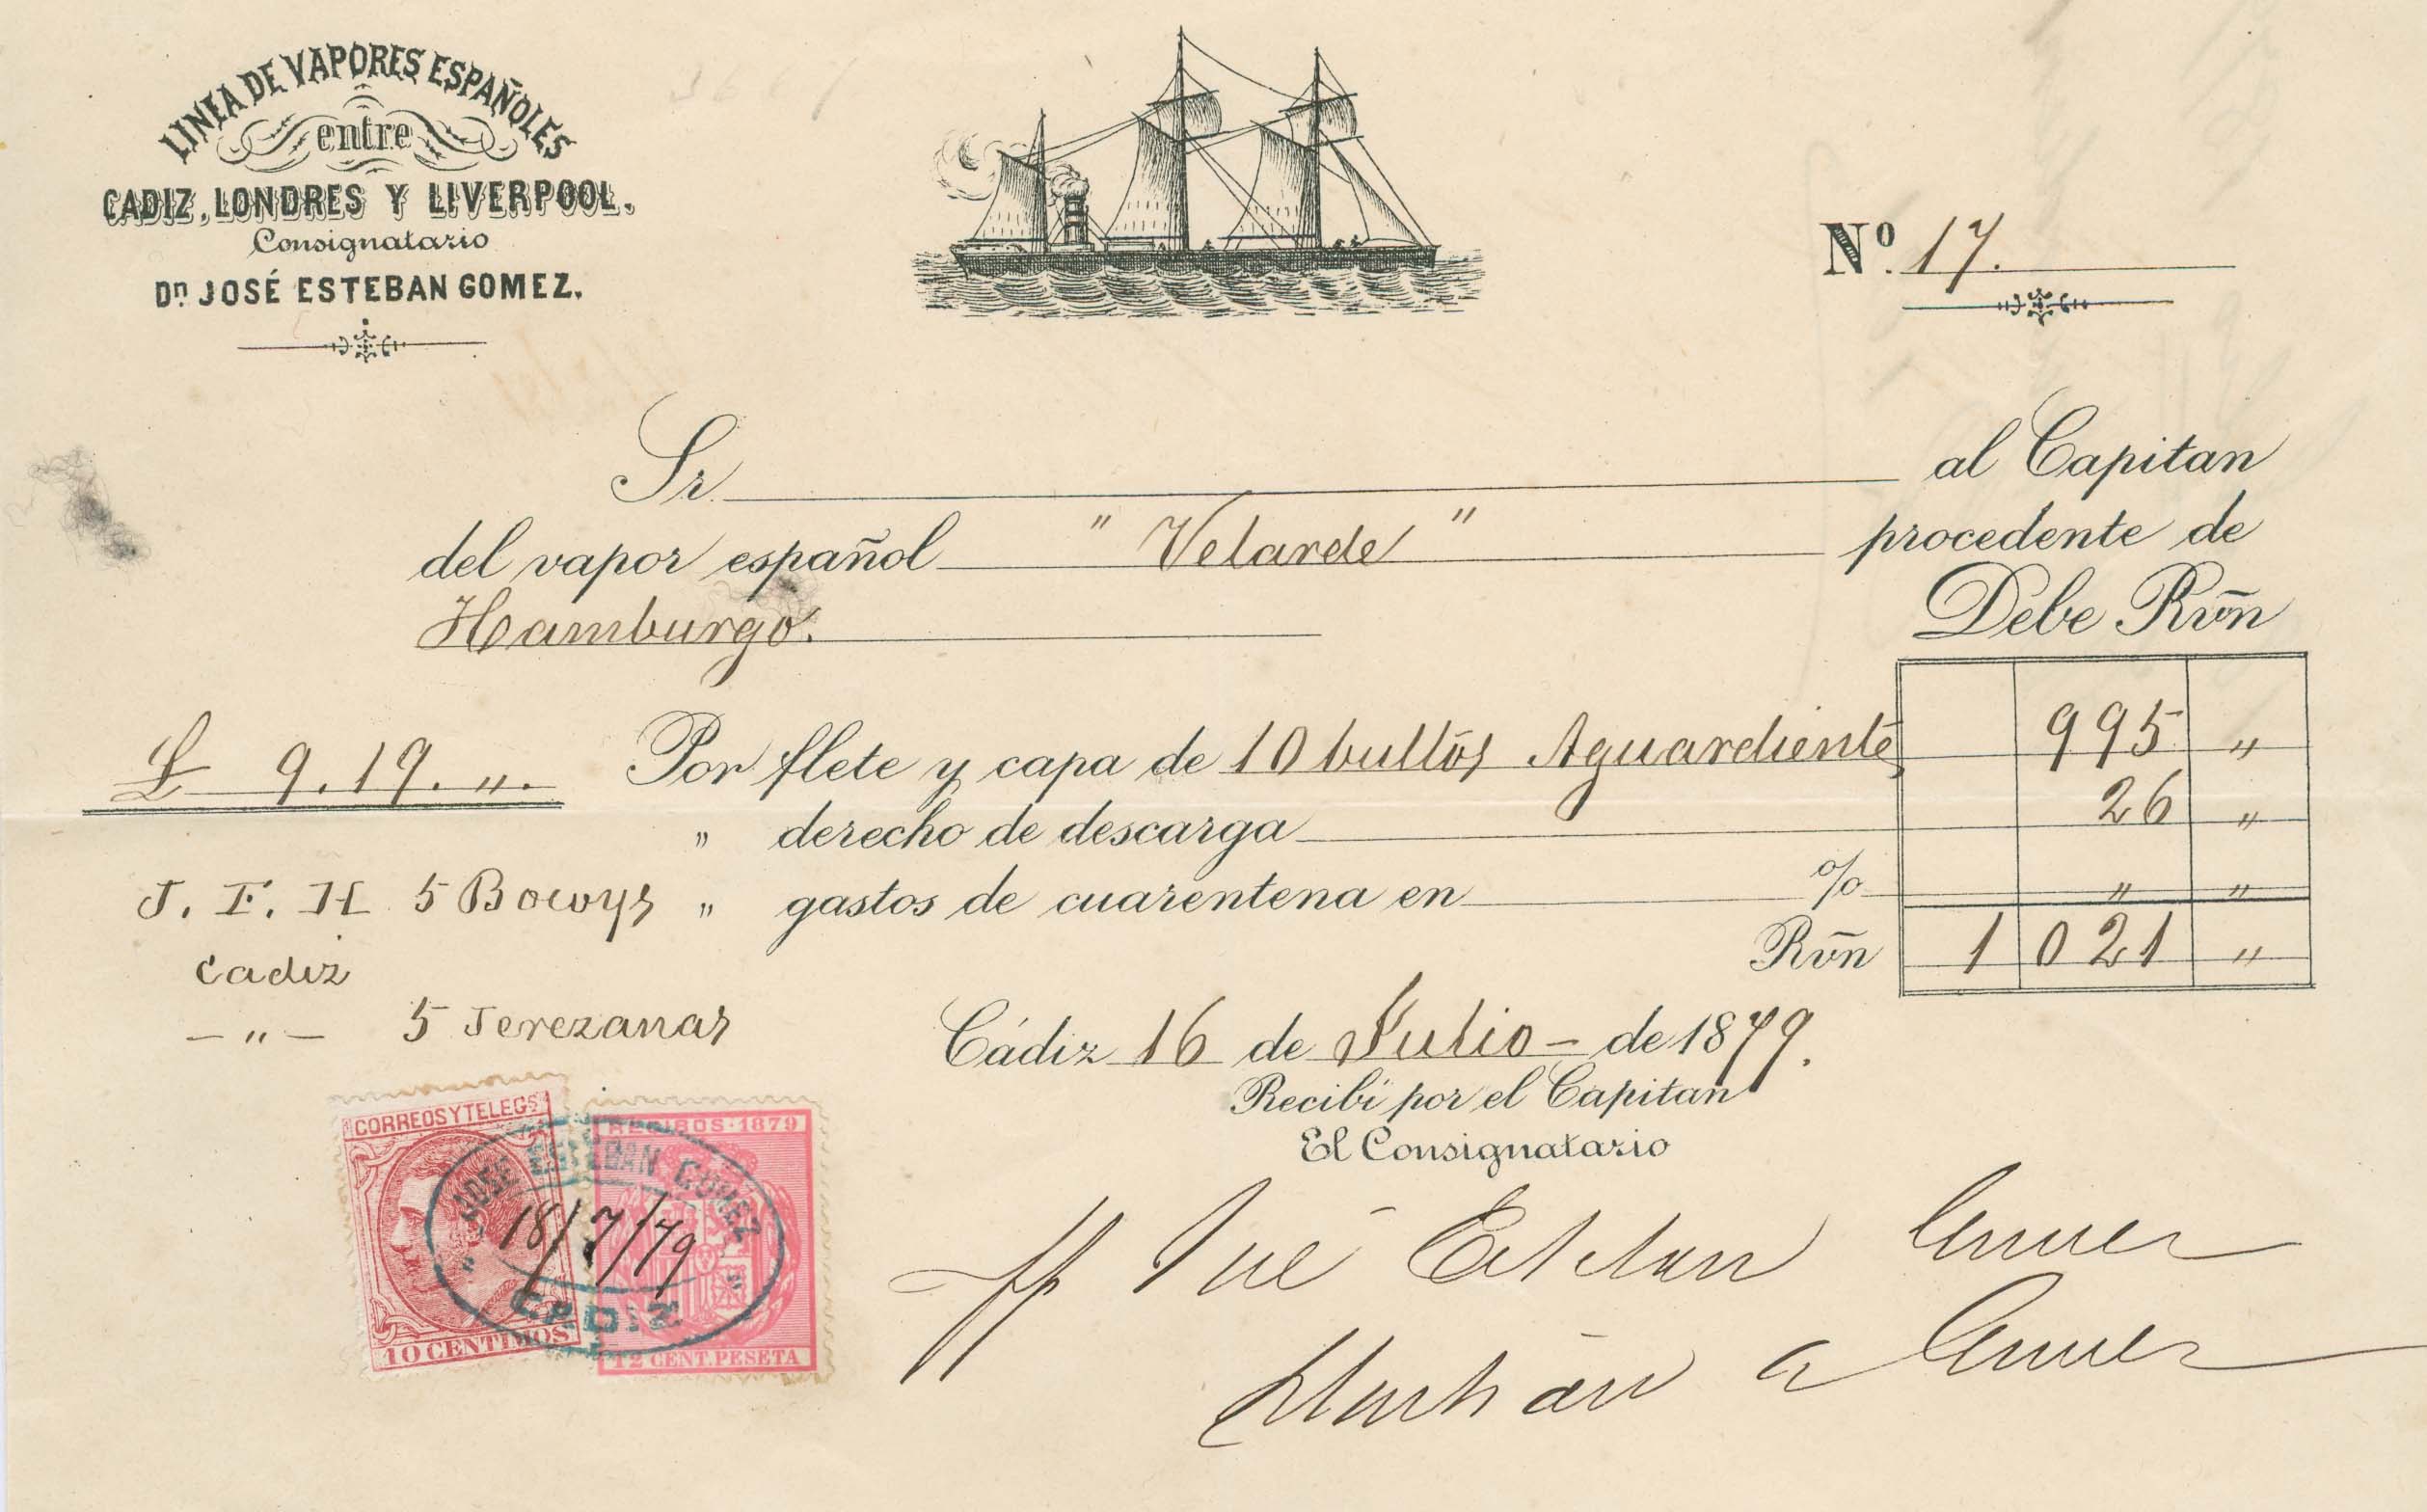 LINEA DE VAPORES ESPAÑOLES
entre
CADIZ, LONDRES Y LIVERPOOL.
Consignatario
Dn JOSÉ ESTEBAN GOMEZ.
Nº. 17.
Sr. al Capitan
del vapor español " Velarde " procedente de
Hamburgo. Debe Rvn̄
£ 9.19. ". Por flete y capa de 10 bultos Aguardiente 995 "
" derecho de descarga 26 "
J. F. H 5 Bocoys " gastos de cuarentena en % " "
Cadiz Rvn̄ 1 021 "
— " — 5 Jerezanas
Cádiz 16 de Julio - de 1879.
Recibí por el Capitan
El Consignatario
CORREOS Y TELEGS
10 CENTIMOS
RECIBOS-1879
12 CENT. PESETA
JOSÉ ESTEBAN GOMEZ
18/7/79
CADIZ
José Esteban Gomez
Gomez